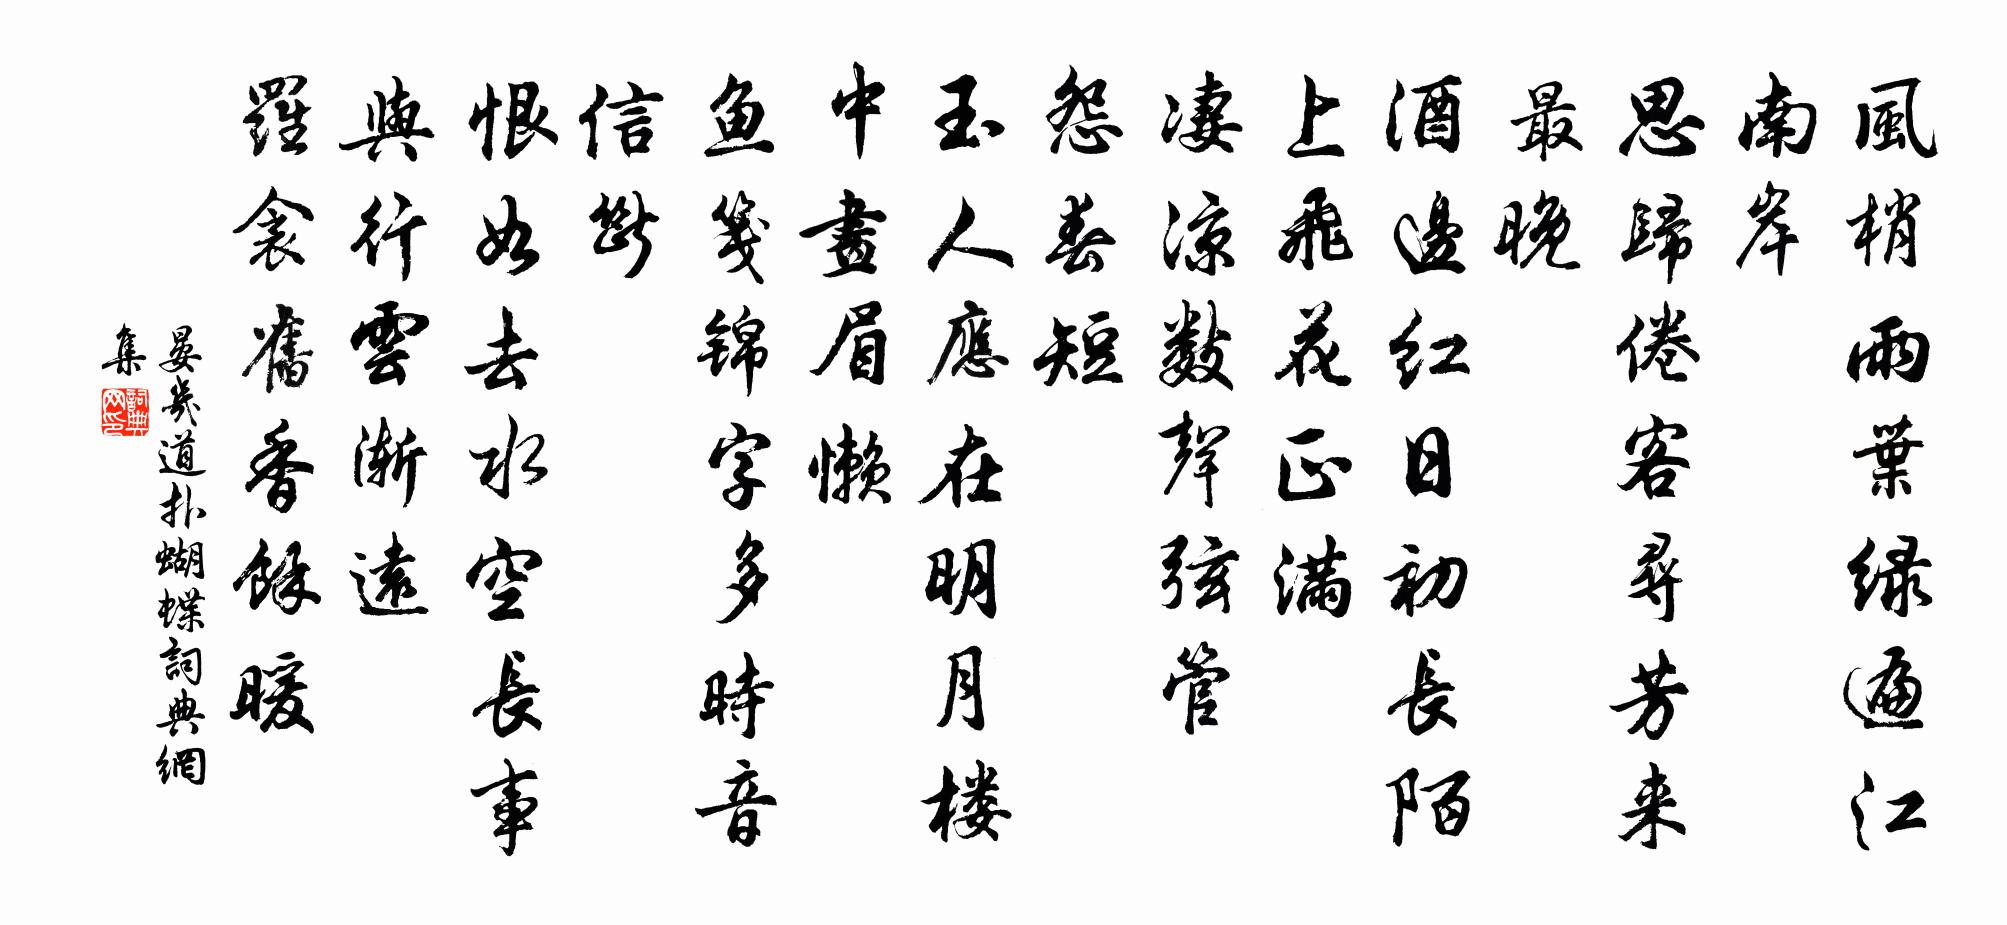 風梢雨葉绿遍江
南岸
思歸倦客尋芳来
最晚
酒邊红日初長陌
上飛花正满
凄涼数聲弦管
怨春短
玉人應在明月楼
中畫眉懒
魚箋锦字多時音
信斷
恨如去水空長事
與行雲渐遠
羅衾舊香餘暖
晏幾道扑蝴蝶詞典網
集
詞典
网印